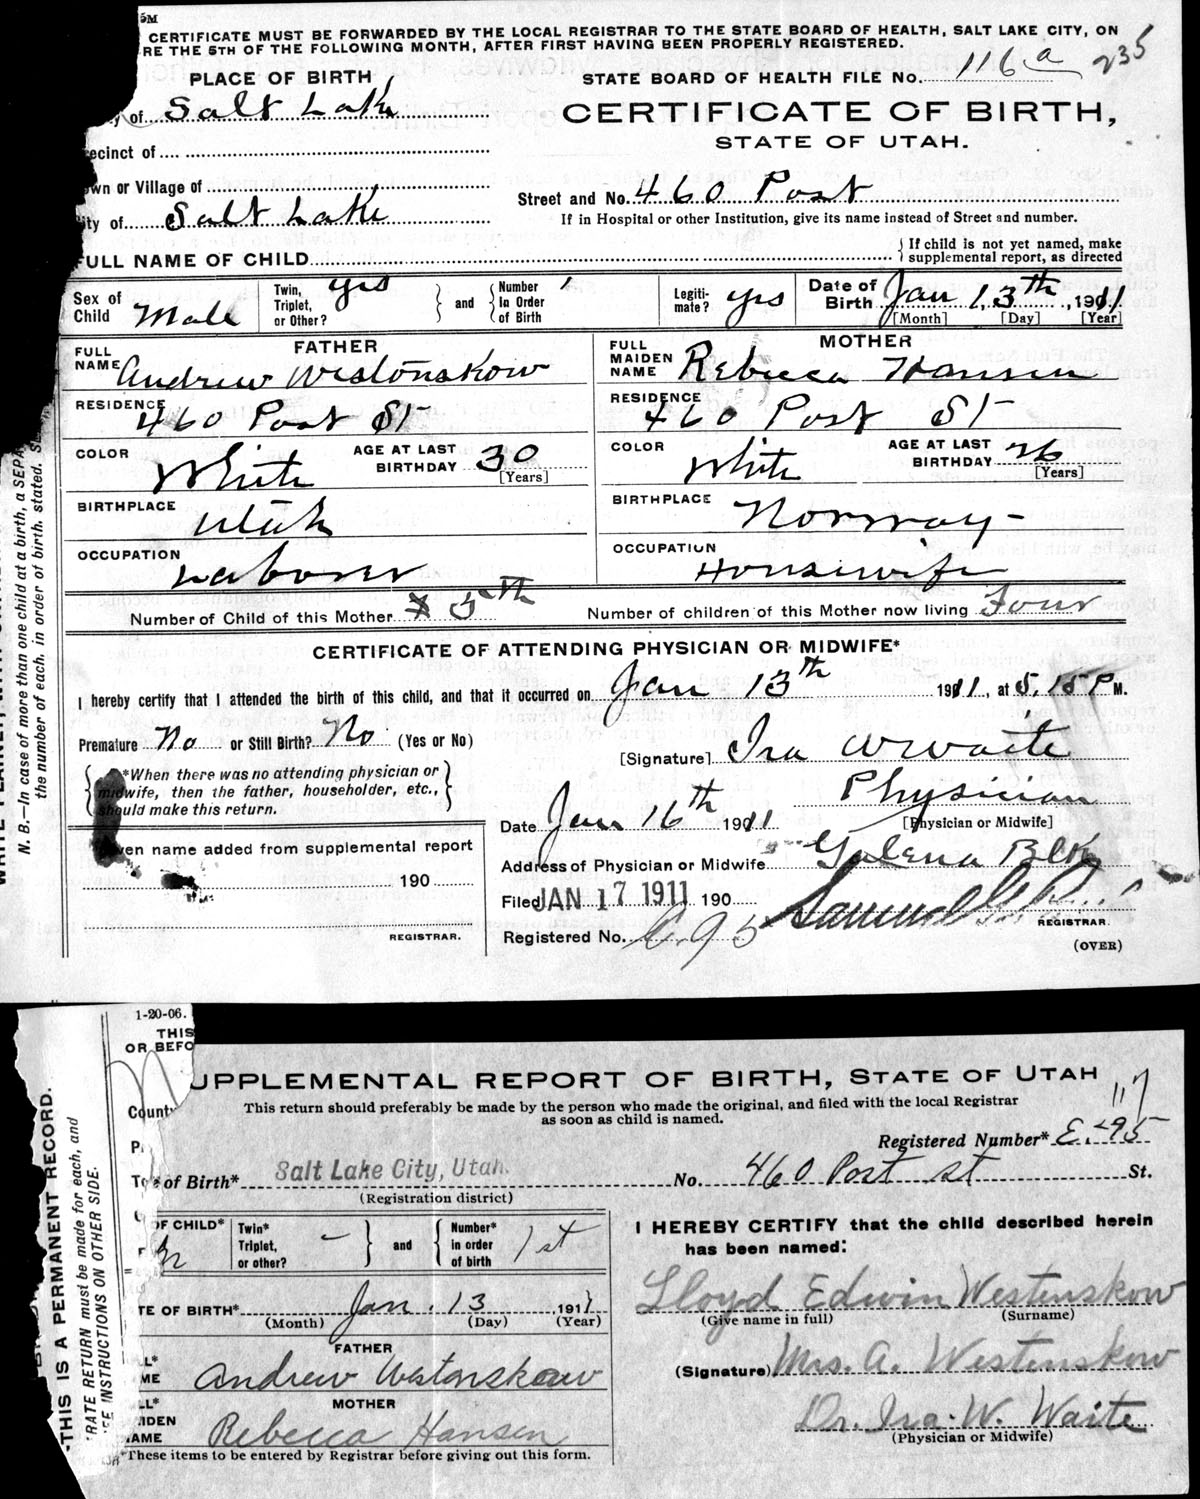 5M
CERTIFICATE MUST BE FORWARDED BY THE LOCAL REGISTRAR TO THE STATE BOARD OF HEALTH, SALT LAKE CITY, ON
RE THE 5TH OF THE FOLLOWING MONTH, AFTER FIRST HAVING BEEN PROPERLY REGISTERED.
PLACE OF BIRTH
STATE BOARD OF HEALTH FILE No. 116 a 235
y of Salt Lake
CERTIFICATE OF BIRTH,
STATE OF UTAH.
ecinct of
own or Village of
Street and No. 460 Post
ity of Salt Lake
If in Hospital or other Institution, give its name instead of Street and number.
FULL NAME OF CHILD
If child is not yet named, make supplemental report, as directed
Sex of Child Male
Twin, Triplet, or Other? yes
and
Number in Order of Birth 1
Legitimate? yes
Date of Birth Jan 13th, 1911
[Month] [Day] [Year]
FATHER
MOTHER
FULL NAME Andrew Westonskow
FULL MAIDEN NAME Rebecca Hansen
RESIDENCE 460 Post St
RESIDENCE 460 Post St
COLOR White AGE AT LAST BIRTHDAY 30 [Years]
COLOR White AGE AT LAST BIRTHDAY 26 [Years]
BIRTHPLACE Utah
BIRTHPLACE Norway-
OCCUPATION Laborer
OCCUPATION Housewife
Number of Child of this Mother 5th
Number of children of this Mother now living Four
CERTIFICATE OF ATTENDING PHYSICIAN OR MIDWIFE*
I hereby certify that I attended the birth of this child, and that it occurred on Jan 13th 1911, at 5.15 P M.
Premature No or Still Birth? No (Yes or No)
[Signature] Ira W Waite
*When there was no attending physician or midwife, then the father, householder, etc., should make this return.
Physician
[Physician or Midwife]
Date Jan 16th 1911
ven name added from supplemental report
Address of Physician or Midwife Galena Blk
190
Filed JAN 17 1911 190
Samuel G.
REGISTRAR.
REGISTRAR.
Registered No. E. 95
(OVER)
N. B.—In case of more than one child at a birth, a SEPA
the number of each, in order of birth, stated.
1-20-06.
THIS
OR BEFO
THIS IS A PERMANENT RECORD.
RATE RETURN must be made for each, and
EE INSTRUCTIONS ON OTHER SIDE.
County
UPPLEMENTAL REPORT OF BIRTH, STATE OF UTAH
117
This return should preferably be made by the person who made the original, and filed with the local Registrar
as soon as child is named.
Registered Number* E-95
of Birth* Salt Lake City, Utah No. 460 Post st St.
(Registration district)
OF CHILD*
Twin* Triplet, or other? -
and
Number* in order of birth 1st
I HEREBY CERTIFY that the child described herein
has been named:
Lloyd Edwin Westenskow
(Give name in full) (Surname)
TE OF BIRTH* Jan. 13 1911
(Month) (Day) (Year)
FATHER
Andrew Westonskow
(Signature) Mrs. A. Westenskow
MOTHER
IDEN
AME Rebecca Hansen
Dr. Ira W. Waite
(Physician or Midwife)
*These items to be entered by Registrar before giving out this form.